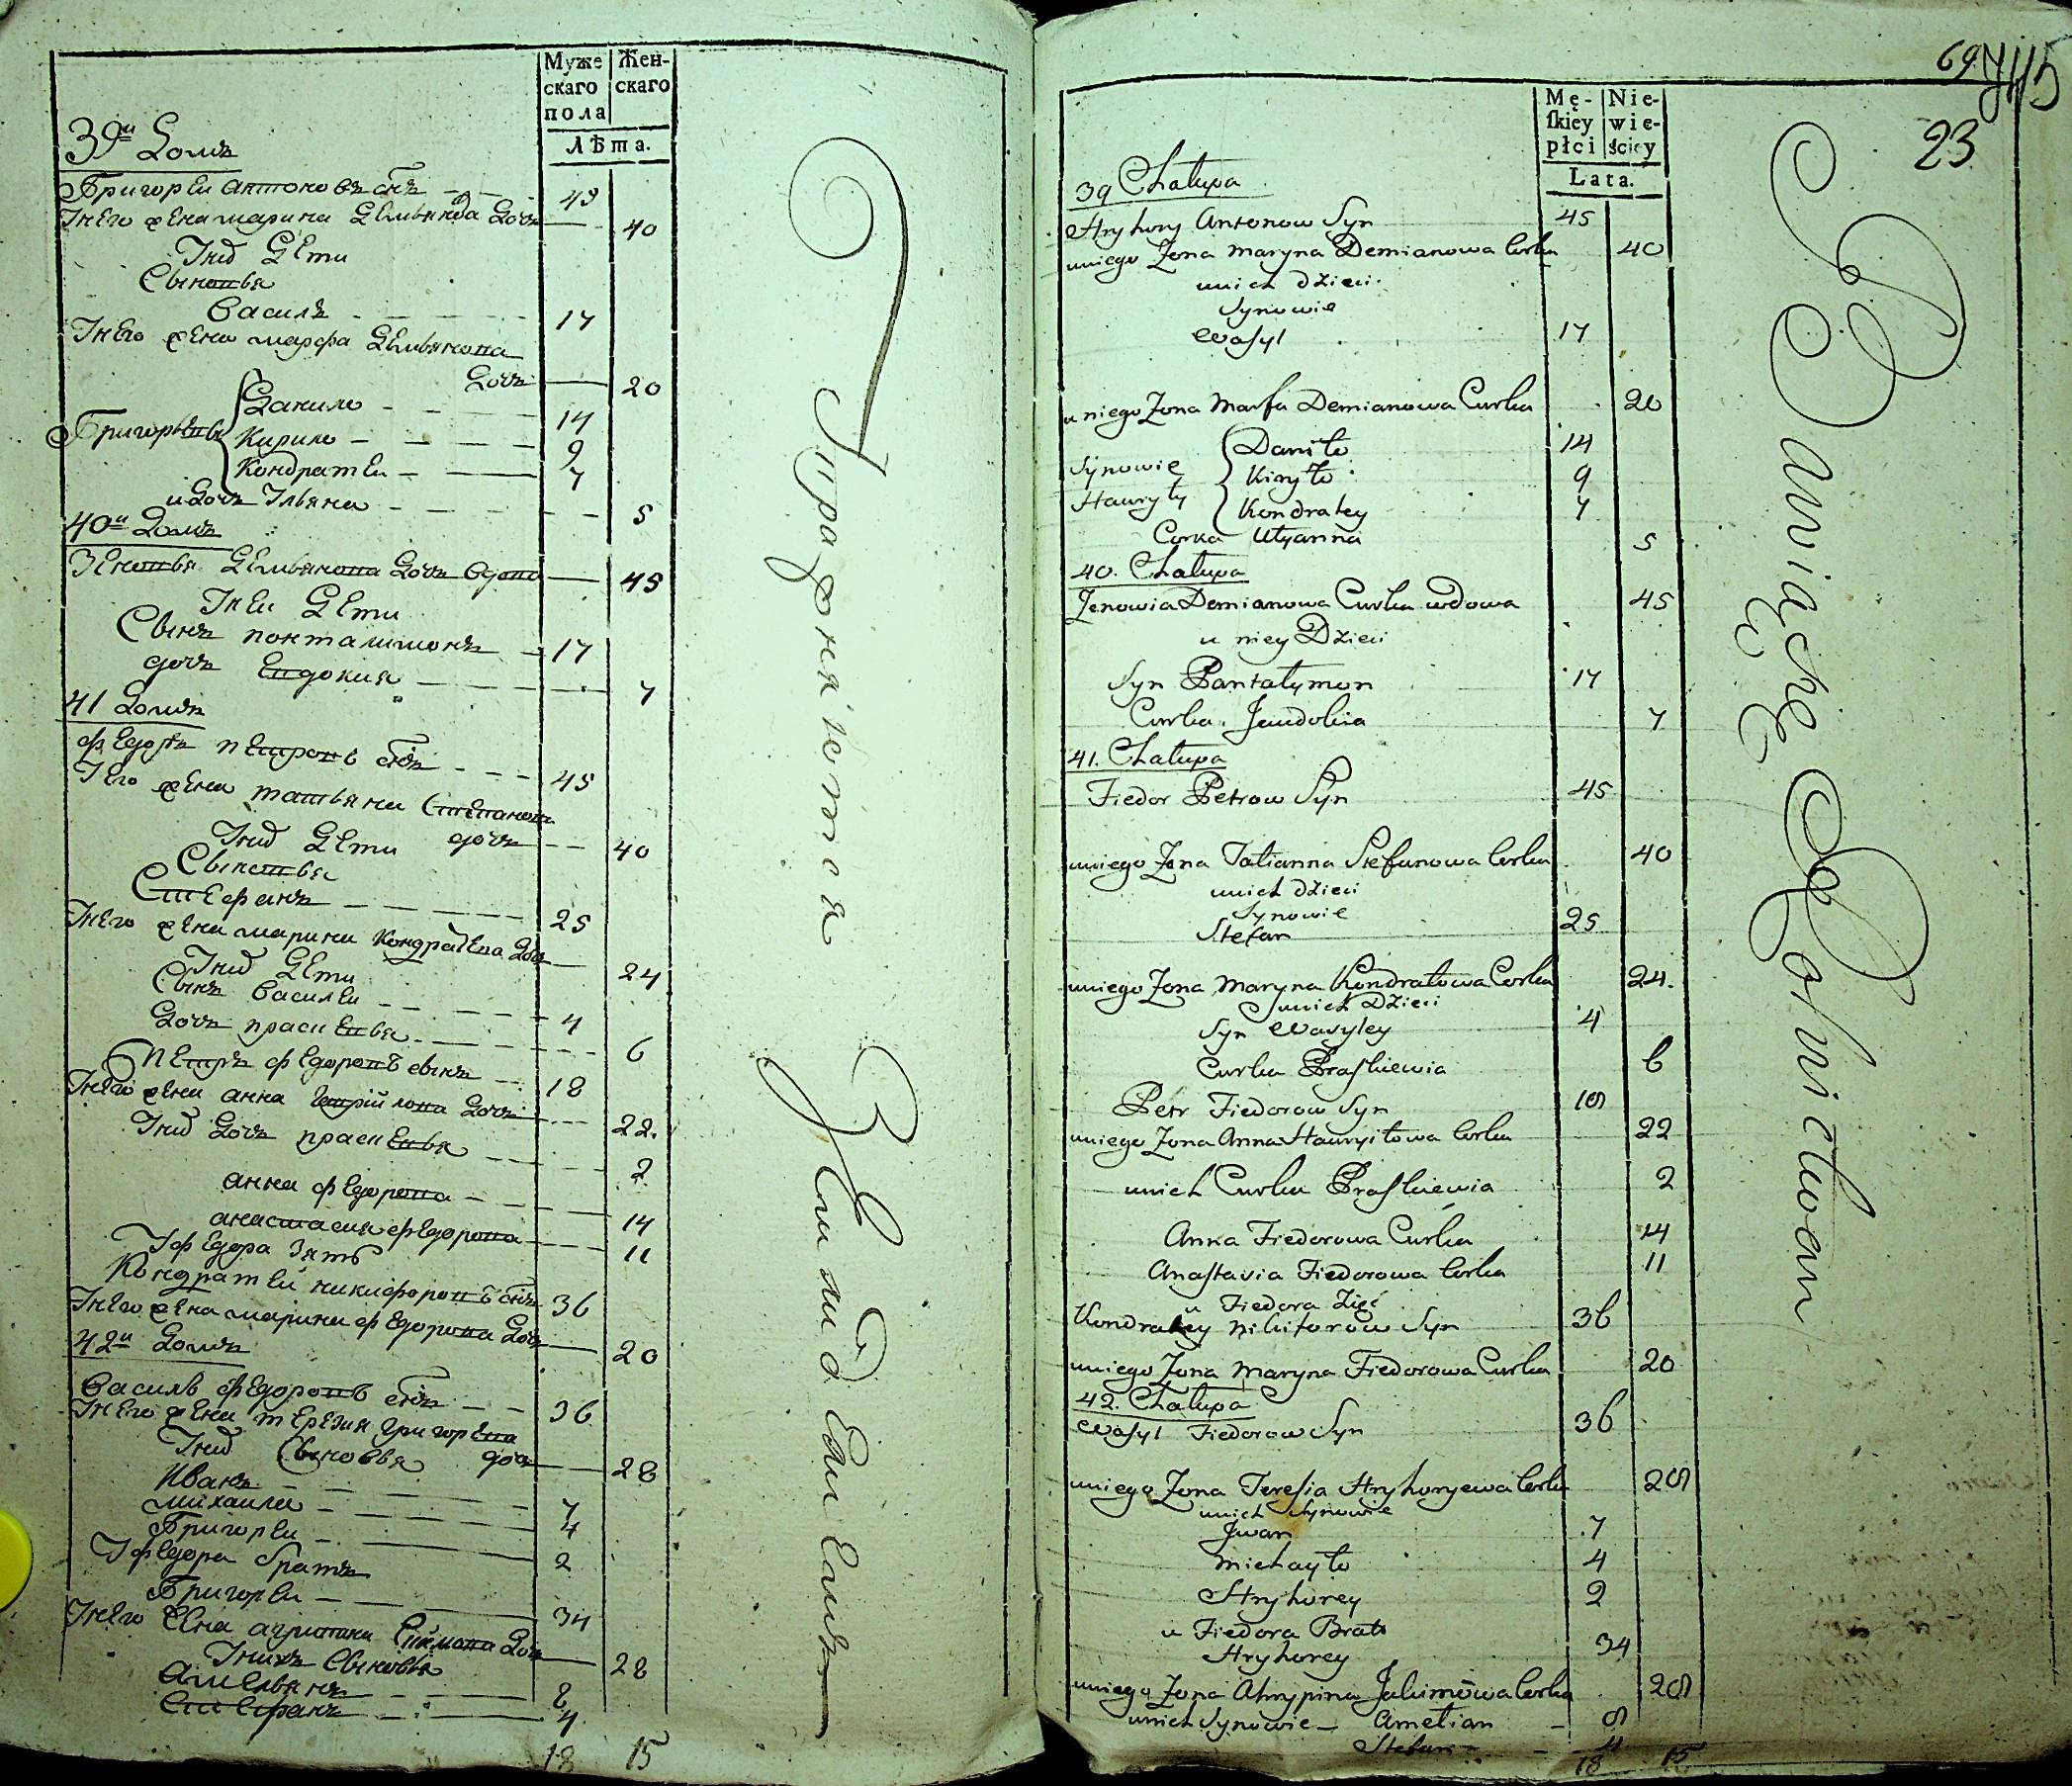 Муже
скаго
пола
Жен-
скаго
Лѣта.
39й Домъ
Григореи антоновъ снъ 45
Унего жена марина Демьянова дочь 40
Уних Дети
Сыновья
Василь 17
Унего жена марфа Демьянова
Дочь 20
Григорьевы
Данило 14
Кирило 9
Кондратеи 7
и Дочь Ульяна 5
40й Домъ
Зеновья Демьянова Дочь вдова 45
Уней Дети
Сынъ понталимонъ 17
дочь Евдокия 7
41 Домъ
Федоръ петровъ снъ 45
Унего жена татьяна Степанова
дочь 40
Уних Дети
Сыновья
Стефанъ 25
Унего жена марина Кондратева Дочь 24
Уних Дети
Сынъ Василеи 4
Дочь прасковья 6
Петръ федоровъ сынъ 18
Унего жена анна Гаврилова Дочь 22.
Уних Дочь прасковья 2
анна федорова 14
анастасия федорова 11
У федора Зять
Кондратей никифоровъ снъ 36
Унего жена марина федорова Дочь 20
42й Домъ
Василь федоровъ снъ 36
Унего жена терезия григорева
дочь 28
Уних Сыновья
Иванъ 7
михаила 4
Григореи 2
У федора братъ
Григореи 34
Унего жена агрипина Якимова Дочь 28
Унихъ Сыновья
Амельянъ 8
Стефанъ 4
18 15
Упражняются Земледелиемъ
69
415
23
Mę-
skiey
płci
Nie-
wie-
ściey
Lata.
39 Chałupa
Hryhory Antonow Syn 45
uniego Zona Maryna Demianowa Corka 40
unich dzieci
Synowie
Wasyl 17
u niego Zona Marfa Demianowa Curka 20
Synowie
Hawryły
Daniło 14
Kiryło 9
Kondratey 7
Corka Ulyanna 5
40. Chałupa
Zenowia Demianowa Curka wdowa 45
u niey Dzieci
Syn Pantałymon 17
Curka Jewdokia 7
41. Chałupa
Fiedor Petrow Syn 45
uniego Zona Tatianna Stefanowa Corka 40
unich dzieci
Synowie
Stefan 25
uniego Zona Maryna Kondratowa Corka 24.
unich Dzieci
Syn Wasyley 4
Curka Praskiewia 6
Petr Fiedorow Syn 18
uniego Zona Anna Hawryiłowa Corka 22
unich Curka Praskiewia 2
Anna Fiedorowa Curka 14
Anastasia Fiedorowa Corka 11
u Fiedora Zięć
Kondratey Nikiforow Syn 36
uniego Zona Maryna Fiedorowa Curka 20
42. Chałupa
Wasyl Fiedorow Syn 36
uniego Zona Teresia Hryhoryewa Corka 28
unich Synowie
Jwan 7
Michayło 4
Hryhorey 2
u Fiedora Brat
Hryhorey 34
uniego Zona Ahrypina Jakimowa Corka 28
unich Synowie Amelian 8
Stefan 4
18 15
Bawiący się Rolnictwem